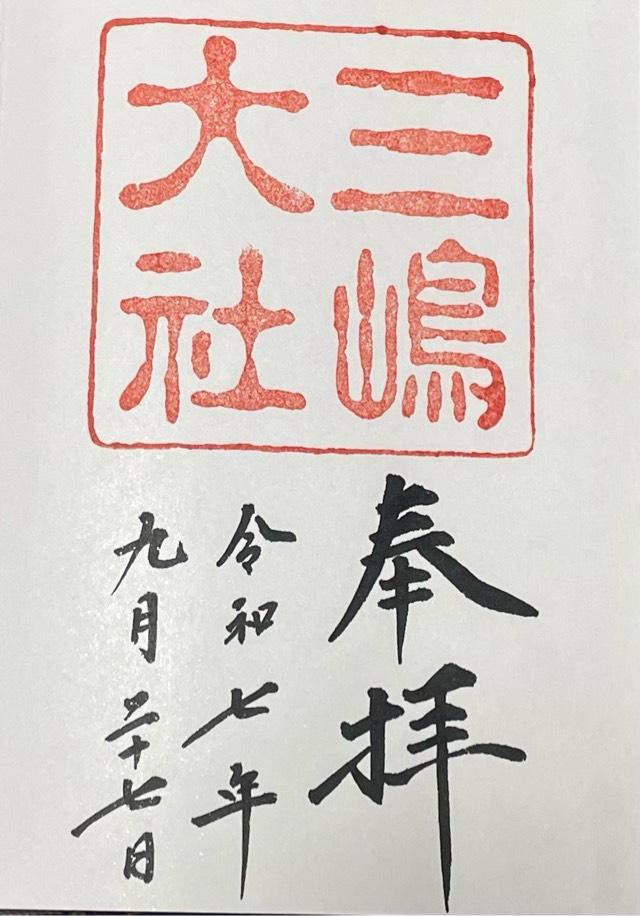 三嶋
大社
奉拝
令和七年
九月二十七日